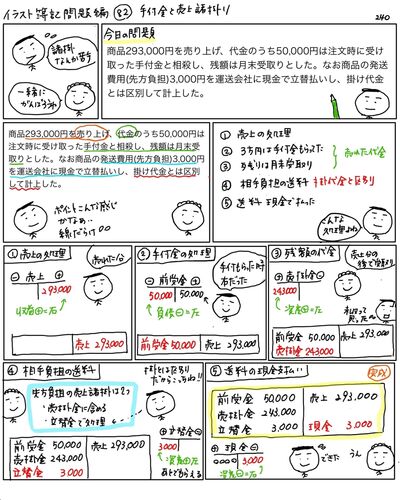 イラスト簿記問題編 82 手付金と売上諸掛り
240
諸掛なんか苦手
一緒にがんばろうね
今日の問題
商品293,000円を売り上げ、代金のうち50,000円は注文時に受け
取った手付金と相殺し、残額は月末受取りとした。なお商品の発送
費用(先方負担)3,000円を運送会社に現金で立替払いし、掛け代金
とは区別して計上した。
商品293,000円を売り上げ、代金のうち50,000円は
注文時に受け取った手付金と相殺し、残額は月末受
取りとした。なお商品の発送費用(先方負担)3,000円
を運送会社に現金で立替払いし、掛け代金とは区別
して計上した。
ポイントこんな感じ
かなぁ〜
線だらけ
① 売上の処理
② 手付金もらってた
③ 残りは月末受取り
売れた代金
④ 相手負担の送料
掛代金と区別
⑤ 送料現金で払った
こんな
処理よね
① 売上の処理
売れた分
⊖ 売上 ⊕
293,000
収益⊕=右
売上 293,000
② 手付金の処理
⊖ 前受金 ⊕
50,000
50,000
手付もらった時
右だった
負債⊖=左
前受金 50,000
③ 残額の代金
売上分の
後で受取り
⊕ 売掛金 ⊖
243,000
資産⊕=左
前受金 50,000
売上 293,000
売掛金 243,000
④ 相手負担の送料
掛とは区別
だからこっちね!!
先方負担の売上諸掛は?
・売掛金に含める
・立替金で処理
⊕ 立替金 ⊖
3,000
資産⊕左
あとでもらえる
前受金 50,000
売上 293,000
売掛金 243,000
立替金 3,000
⑤ 送料の現金支払い
完成
前受金 50,000
売上 293,000
売掛金 243,000
立替金 3,000
現金 3,000
⊕ 現金 ⊖
3,000
資産⊖=右
できた
うん